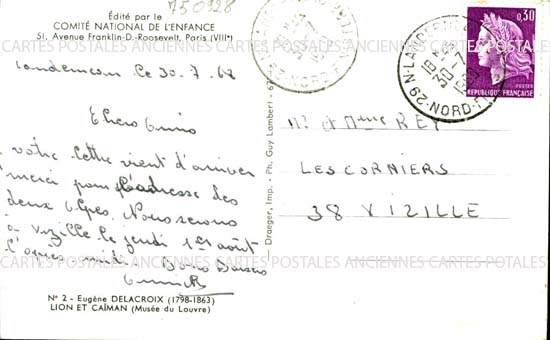 750928
Édité par le
COMITÉ NATIONAL DE L'ENFANCE
51, Avenue Franklin-D.-Roosevelt, Paris (VIIIe)
le 30.7.68
Chers Amis
votre lettre vient d'arriver
merci pour l'adresse des
deux Alpes. Nous serons
à Vizille le jeudi 1er août
l'après midi. Bons Baisers
N° 2 - Eugène DELACROIX (1798-1863)
LION ET CAÏMAN (Musée du Louvre)
Draeger, Imp. - Ph. Guy Lambert - 67
0,30
POSTES
REPUBLIQUE FRANÇAISE
18 H
30-7
29-NORD-F
Mr et Mme REY
LES CORNIERS
38 VIZILLE
CARTES POSTALES ANCIENNES CARTES POSTALES ANCIENNES CARTES POSTALES